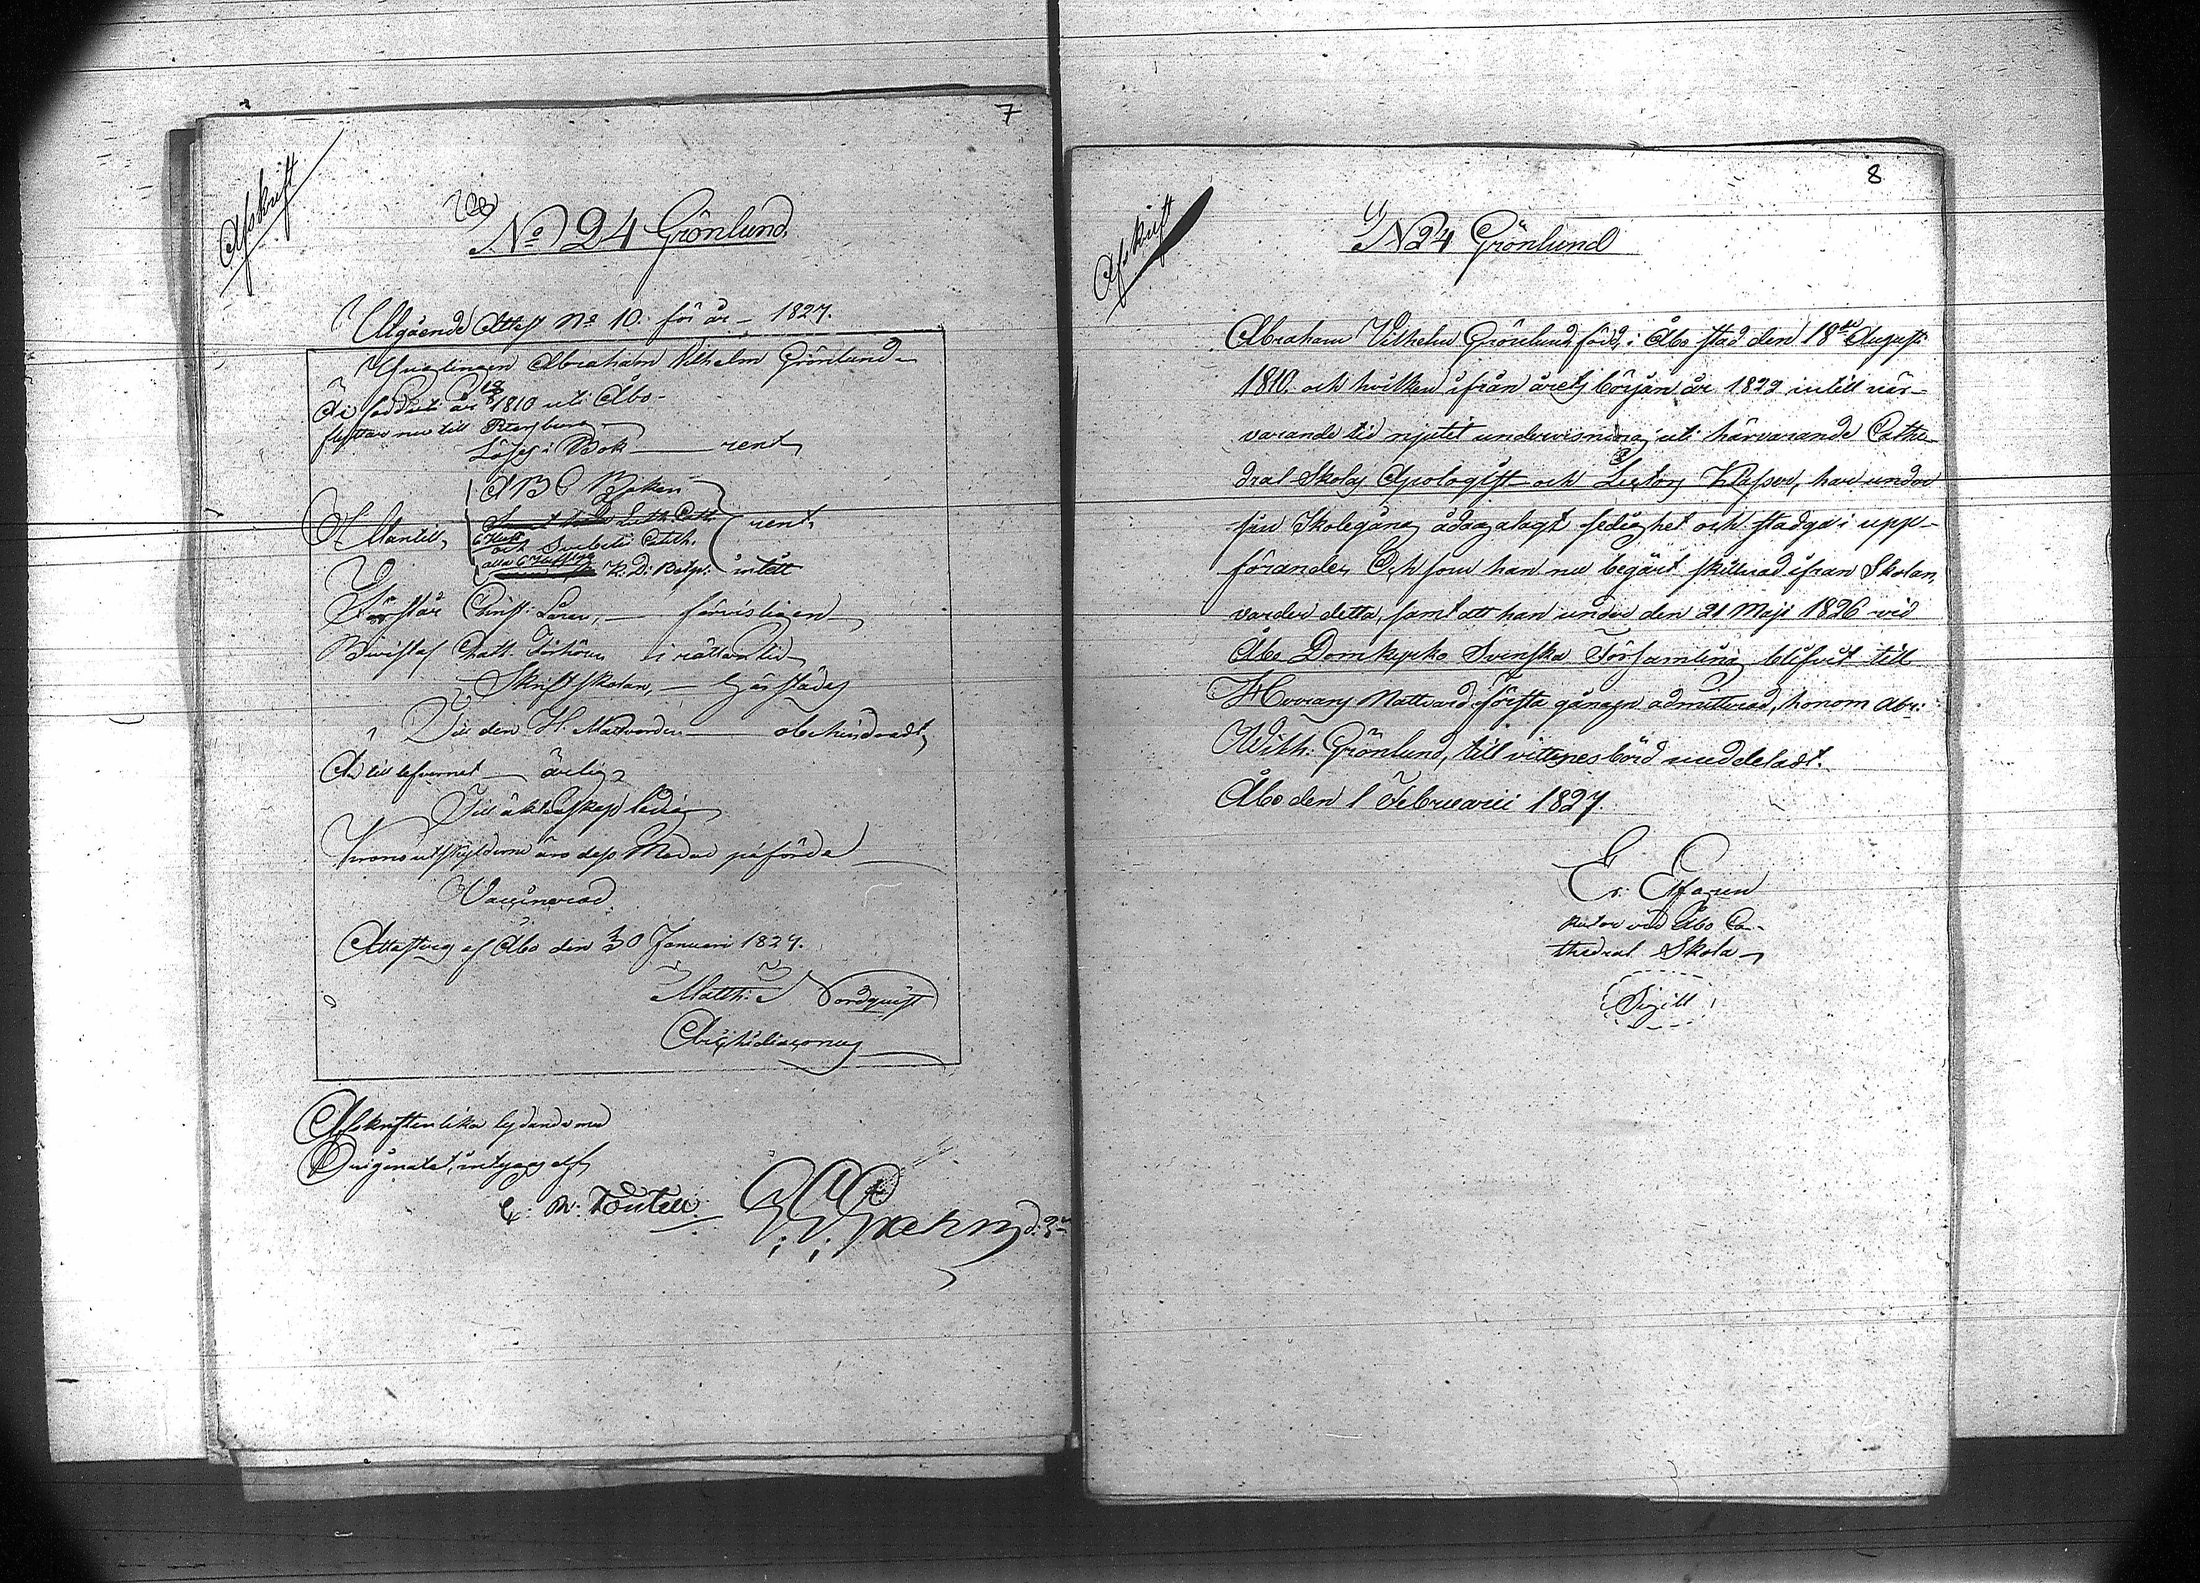 7
Afskrift
No 24 Grönlund
Utgående Attest No 10. för år 1827.
Ynglingen Abraham Vilhelm Grönlund
Är född år 1810 uti Åbo
flyttar nu till Petersburg
Läser i Bok — rent
A B C Boken
Luth. Cath. rent
Utantill
och Svebelii Catch.
H. D. Botps: intett
Förstår Christi Läran, — försvarligen
Bevistat Catt. Förhören i rättan tid
Skriftskolan, —
Till den H. Nattvarden — obehindradt
Är till lefvernet — ärlig
Till äktenskap ledig
Kronoutskylderne äro dess Moder påförde
Vaccinerad
Attesteras af Åbo den 30 Januari 1827.
Matth: Nordquist
Archidiaconus
Afskriften lika lydande med
Originalet, intygas af
8
Afskrift
N 24 Grönlund
Abraham Vilhelm Grönlund född i Åbo stad den 18de Augusti
1810. och hvilken ifrån årets början år 1822 intill när-
varande tid njutit undervisning uti härvarande Cathe-
dral Skolas Apologist och Lectors Klasser, har under
sin Skolegång ådagalagt sedighet och stadga i upp-
förande. Och som han nu begärt skillnad ifrån Skolan,
varder detta, samt att han under den 21 Maji 1826 vid
Åbo Domkyrko Svenska Församling blifvit till
Herrans Nattvard första gången admitterad, honom Abr:
Wilh: Grönlund, till vittnesbörd meddeladt.
Åbo den 1 Februarii 1827.
Er:
Rector vid Åbo Ca-
thedral Skola
Sigill